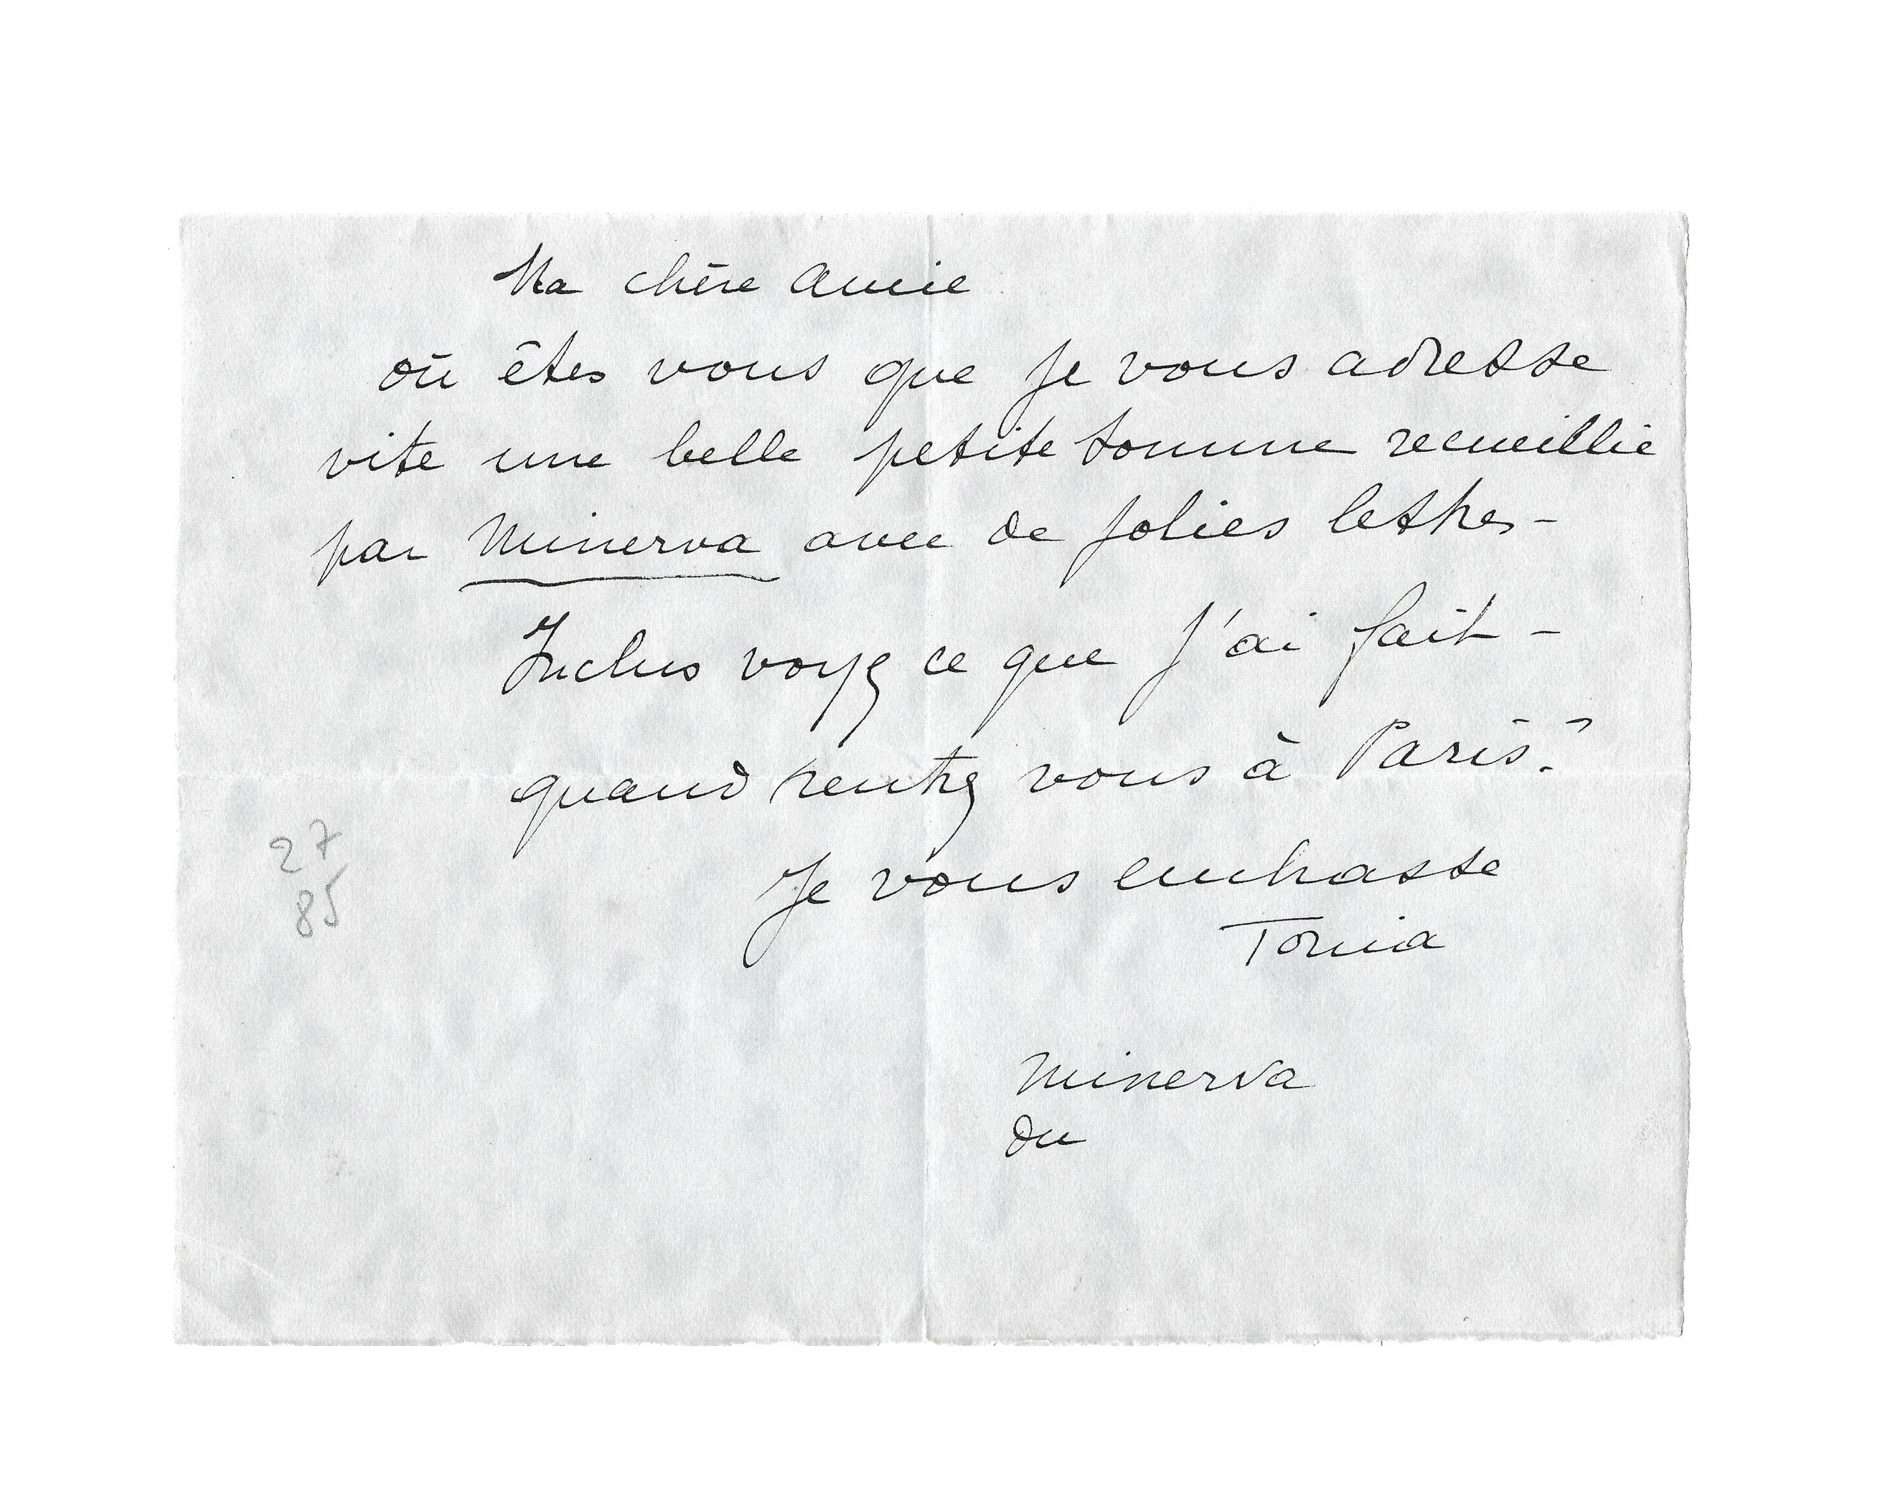 Ma chère Amie
où êtes vous que je vous adresse
vite une belle petite somme recueillie
par Minerva avec de jolies lettres -
Inclus voyez ce que j'ai fait -
quand rentrez vous à Paris ?
Je vous embrasse
Tonia
27
85
Minerva
du